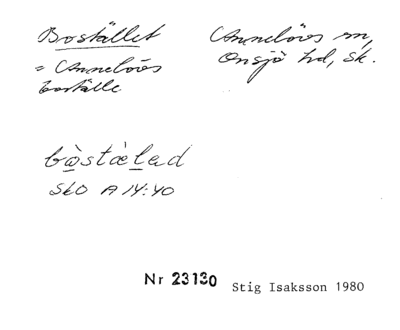 Bostället
Annelövs sn,
Onsjö hd, Sk.
= Annelövs
boställe
bòstæ̀led
SkO A 14:40
Nr 23130
Stig Isaksson 1980